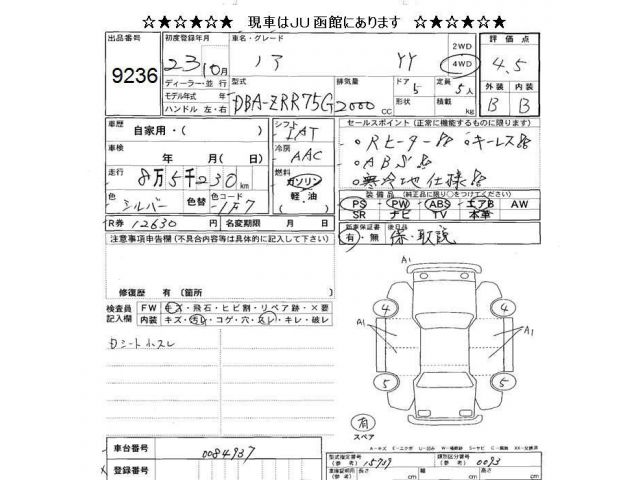 ☆★☆★☆★ 現車はJU函館にあります ☆★☆★☆★
出品番号 初度登録年月 車名・グレード 評価点
9236 23 10月 ノア YY 2WD 4WD 4.5
ディーラー・並行 型式 排気量 ドア 5 定員 5人 外装 内装
モデル年式 年 DBA-ZRR75G 2000 CC 形状 積載 kg B B
ハンドル 左・右
車歴 自家用・( ) シフト IAT セールスポイント(正常に機能するものに限ります)
車検 年 月(日) 冷房 AAC ○Rヒーター ○キーレス
○ABS
走行 8万5千230km 燃料 ガソリン 軽・油 ○寒冷地仕様
色 シルバー 色替 色コード 1F7 装備品(純正品に限り○をつけてください)
PS PW ABS エアB AW
SR ナビ TV 本革
R券 12630 円 名変期限 月 日 新車保証書 後日品
有・無 保・取説
注意事項申告欄(不具合内容等は具体的に記入して下さい)
修復歴 有(箇所
検査員記入欄 FW キズ・飛石・ヒビ割・リペア跡・×要
内装 キズ・汚れ・コゲ・穴・スレ・キレ・破レ
Dシート小スレ
A1
4 4
A1 A1
5 5
有
スペア
A-キズ E-エクボ U-凹み W-補修跡 S-サビ C-腐蝕 XX-交換済
車台番号 0084937
登録番号
型式指定番号(参考) 15909 類別区分番号(参考) 0093
車体証明使用(参考) 長さ cm 幅 cm 高さ